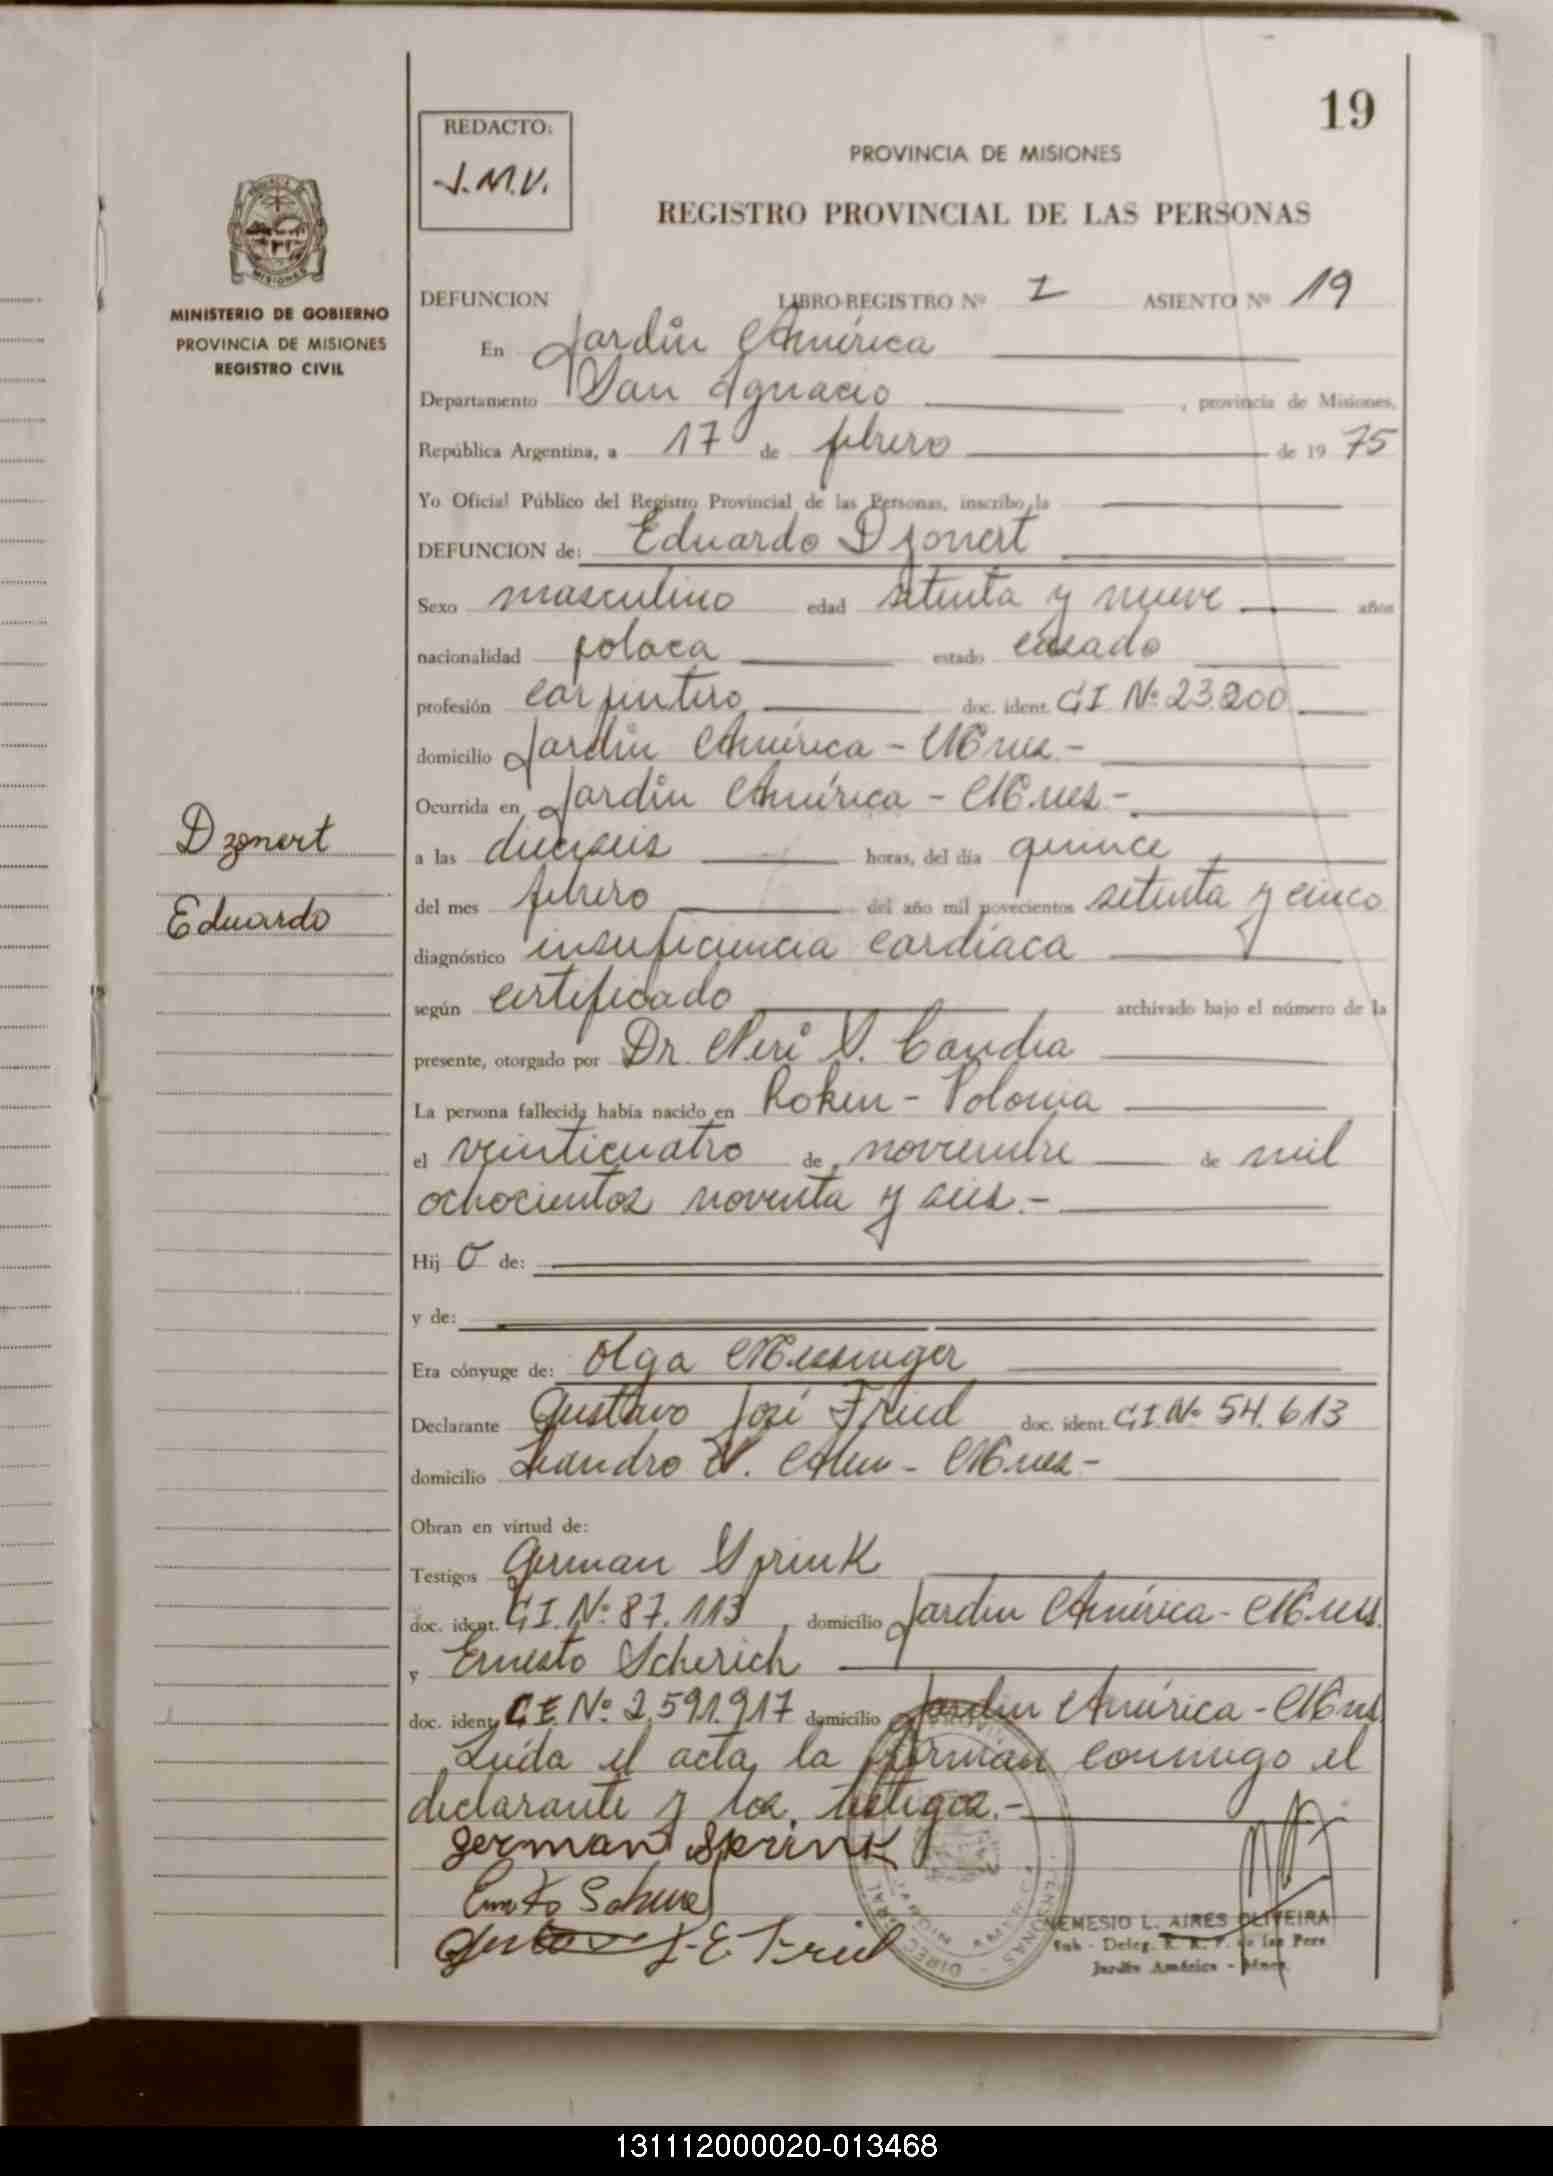 19
REDACTO:
J.M.V.
PROVINCIA DE MISIONES
REGISTRO PROVINCIAL DE LAS PERSONAS
MISIONES
MINISTERIO DE GOBIERNO
PROVINCIA DE MISIONES
REGISTRO CIVIL
DEFUNCION LIBRO-REGISTRO Nº I ASIENTO Nº 19
En Jardín América
Departamento San Ignacio , provincia de Misiones,
República Argentina, a 17 de febrero de 19 75
Yo Oficial Público del Registro Provincial de las Personas, inscribo la
DEFUNCION de: Eduardo Dzonert
Sexo masculino edad setenta y nueve años
nacionalidad polaca estado casado
profesión carpintero doc. ident. C.I. Nº 23.200
domicilio Jardín América - Mnes.-
Ocurrida en Jardín América - Mnes.-
Dzonert
a las dieciseis horas, del día quince
Eduardo
del mes febrero del año mil novecientos setenta y cinco
diagnóstico insuficiencia cardíaca
según certificado archivado bajo el número de la
presente, otorgado por Dr. Neri V. Candia
La persona fallecida había nacido en - Polonia
el veinticuatro de noviembre de mil
ochocientos noventa y seis.-
Hij o de:
y de:
Era cónyuge de: Olga Messinger
Declarante Gustavo José Fried doc. ident. C.I. Nº 54.613
domicilio Leandro N. Alem - Mnes.-
Obran en virtud de:
Testigos German Sprink
doc. ident. C.I. Nº 87.113 , domicilio Jardín América - Mnes.
y Ernesto Scherich
doc. ident. C.I. Nº 2.591.917 domicilio Jardín América - Mnes
Leída el acta, la firman conmigo el
declarante y los testigos.-
german Sprink
NEMESIO L. AIRES OLIVEIRA
Sub - Deleg. R. P. de las Pers
Jardín América - Mnes.
131112000020-013468